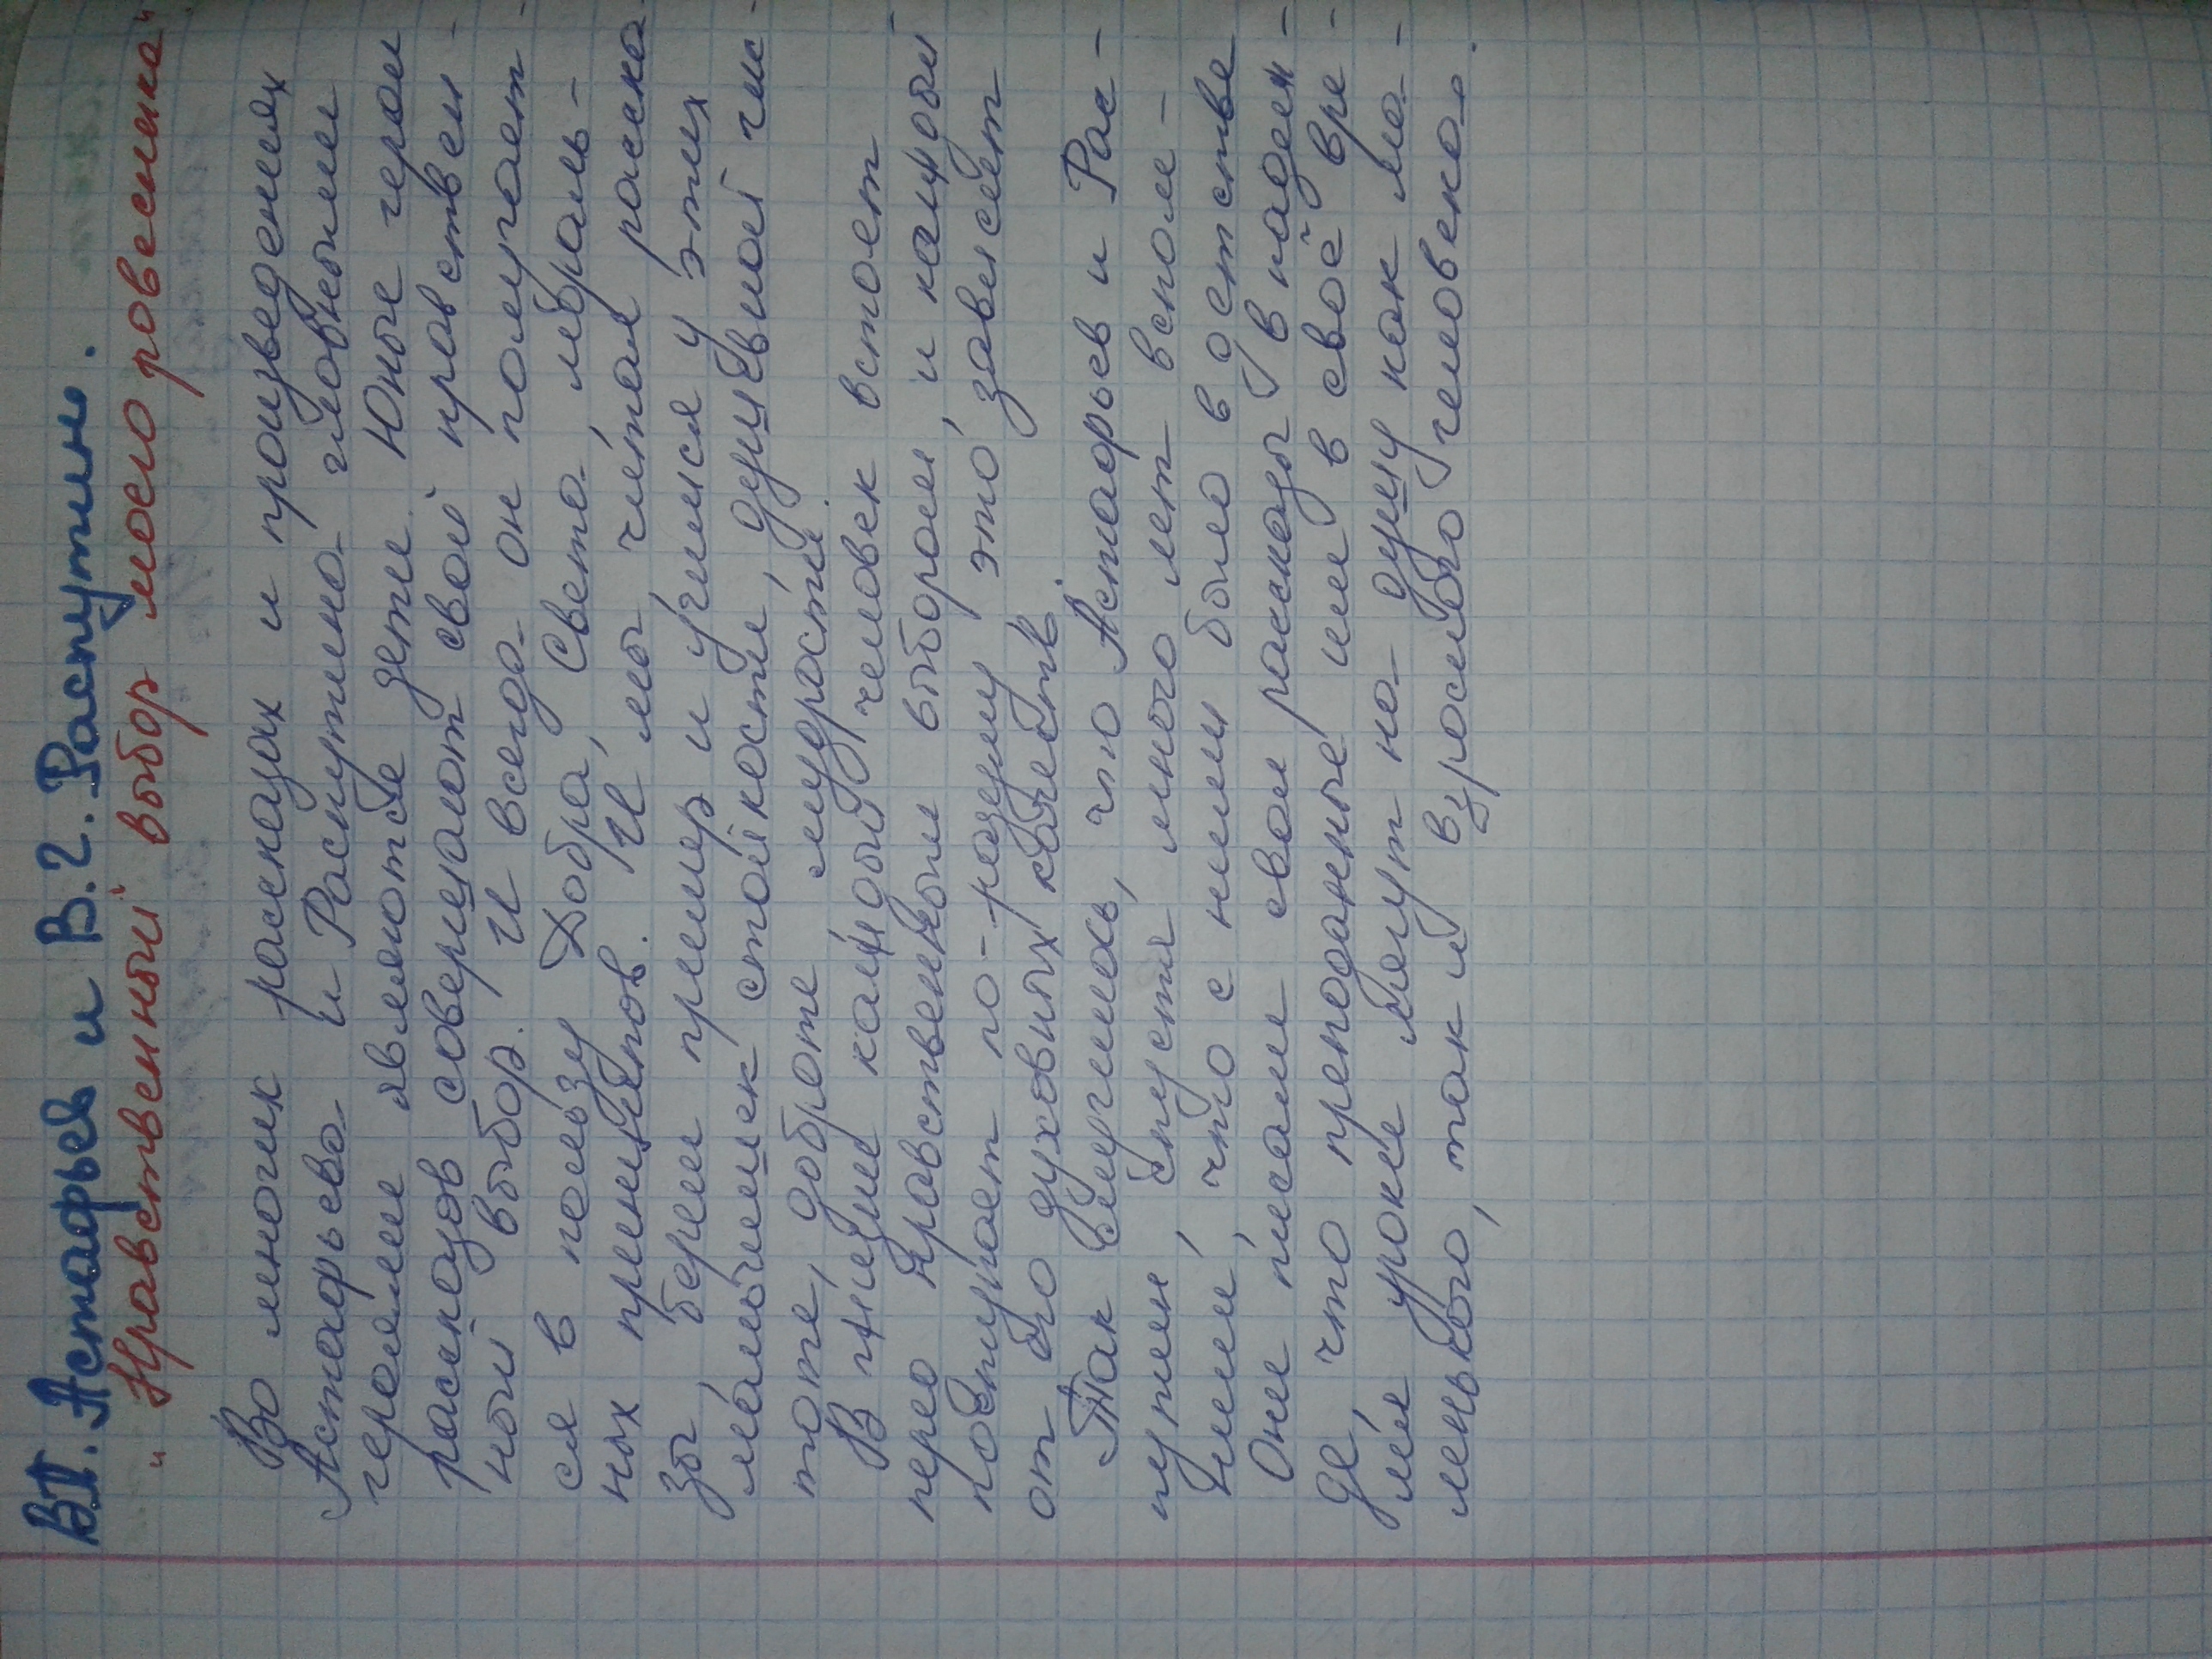 В.П. Астафьев и В.Г. Распутин.
"Нравственный выбор моего ровесника"
Во многих рассказах и произведениях
Астафьева и Распутина главными
героями являются дети. Юные герои
рассказов совершают свой нравствен-
ный выбор. И всегда он получает-
ся в пользу Добра, Света, мораль-
ных принципов. И мы, читая расска-
зы, берем пример и учимся у этих
мальчишек стойкости, душевной чис-
тоте, доброте мудрости.
В жизни каждый человек встает
перед нравственным выбором, и каждый
поступает по-разему это, зависит
от его духовных качеств.
Так случилось, что Астафьев и Рас-
путин, спустя много лет вспом-
нили, что с ними было в детстве
Они писали свои рассказы в надеж-
де, что преподанные им в своё вре-
мя уроки могут на душу как ма-
ленького, так и взрослого человека.